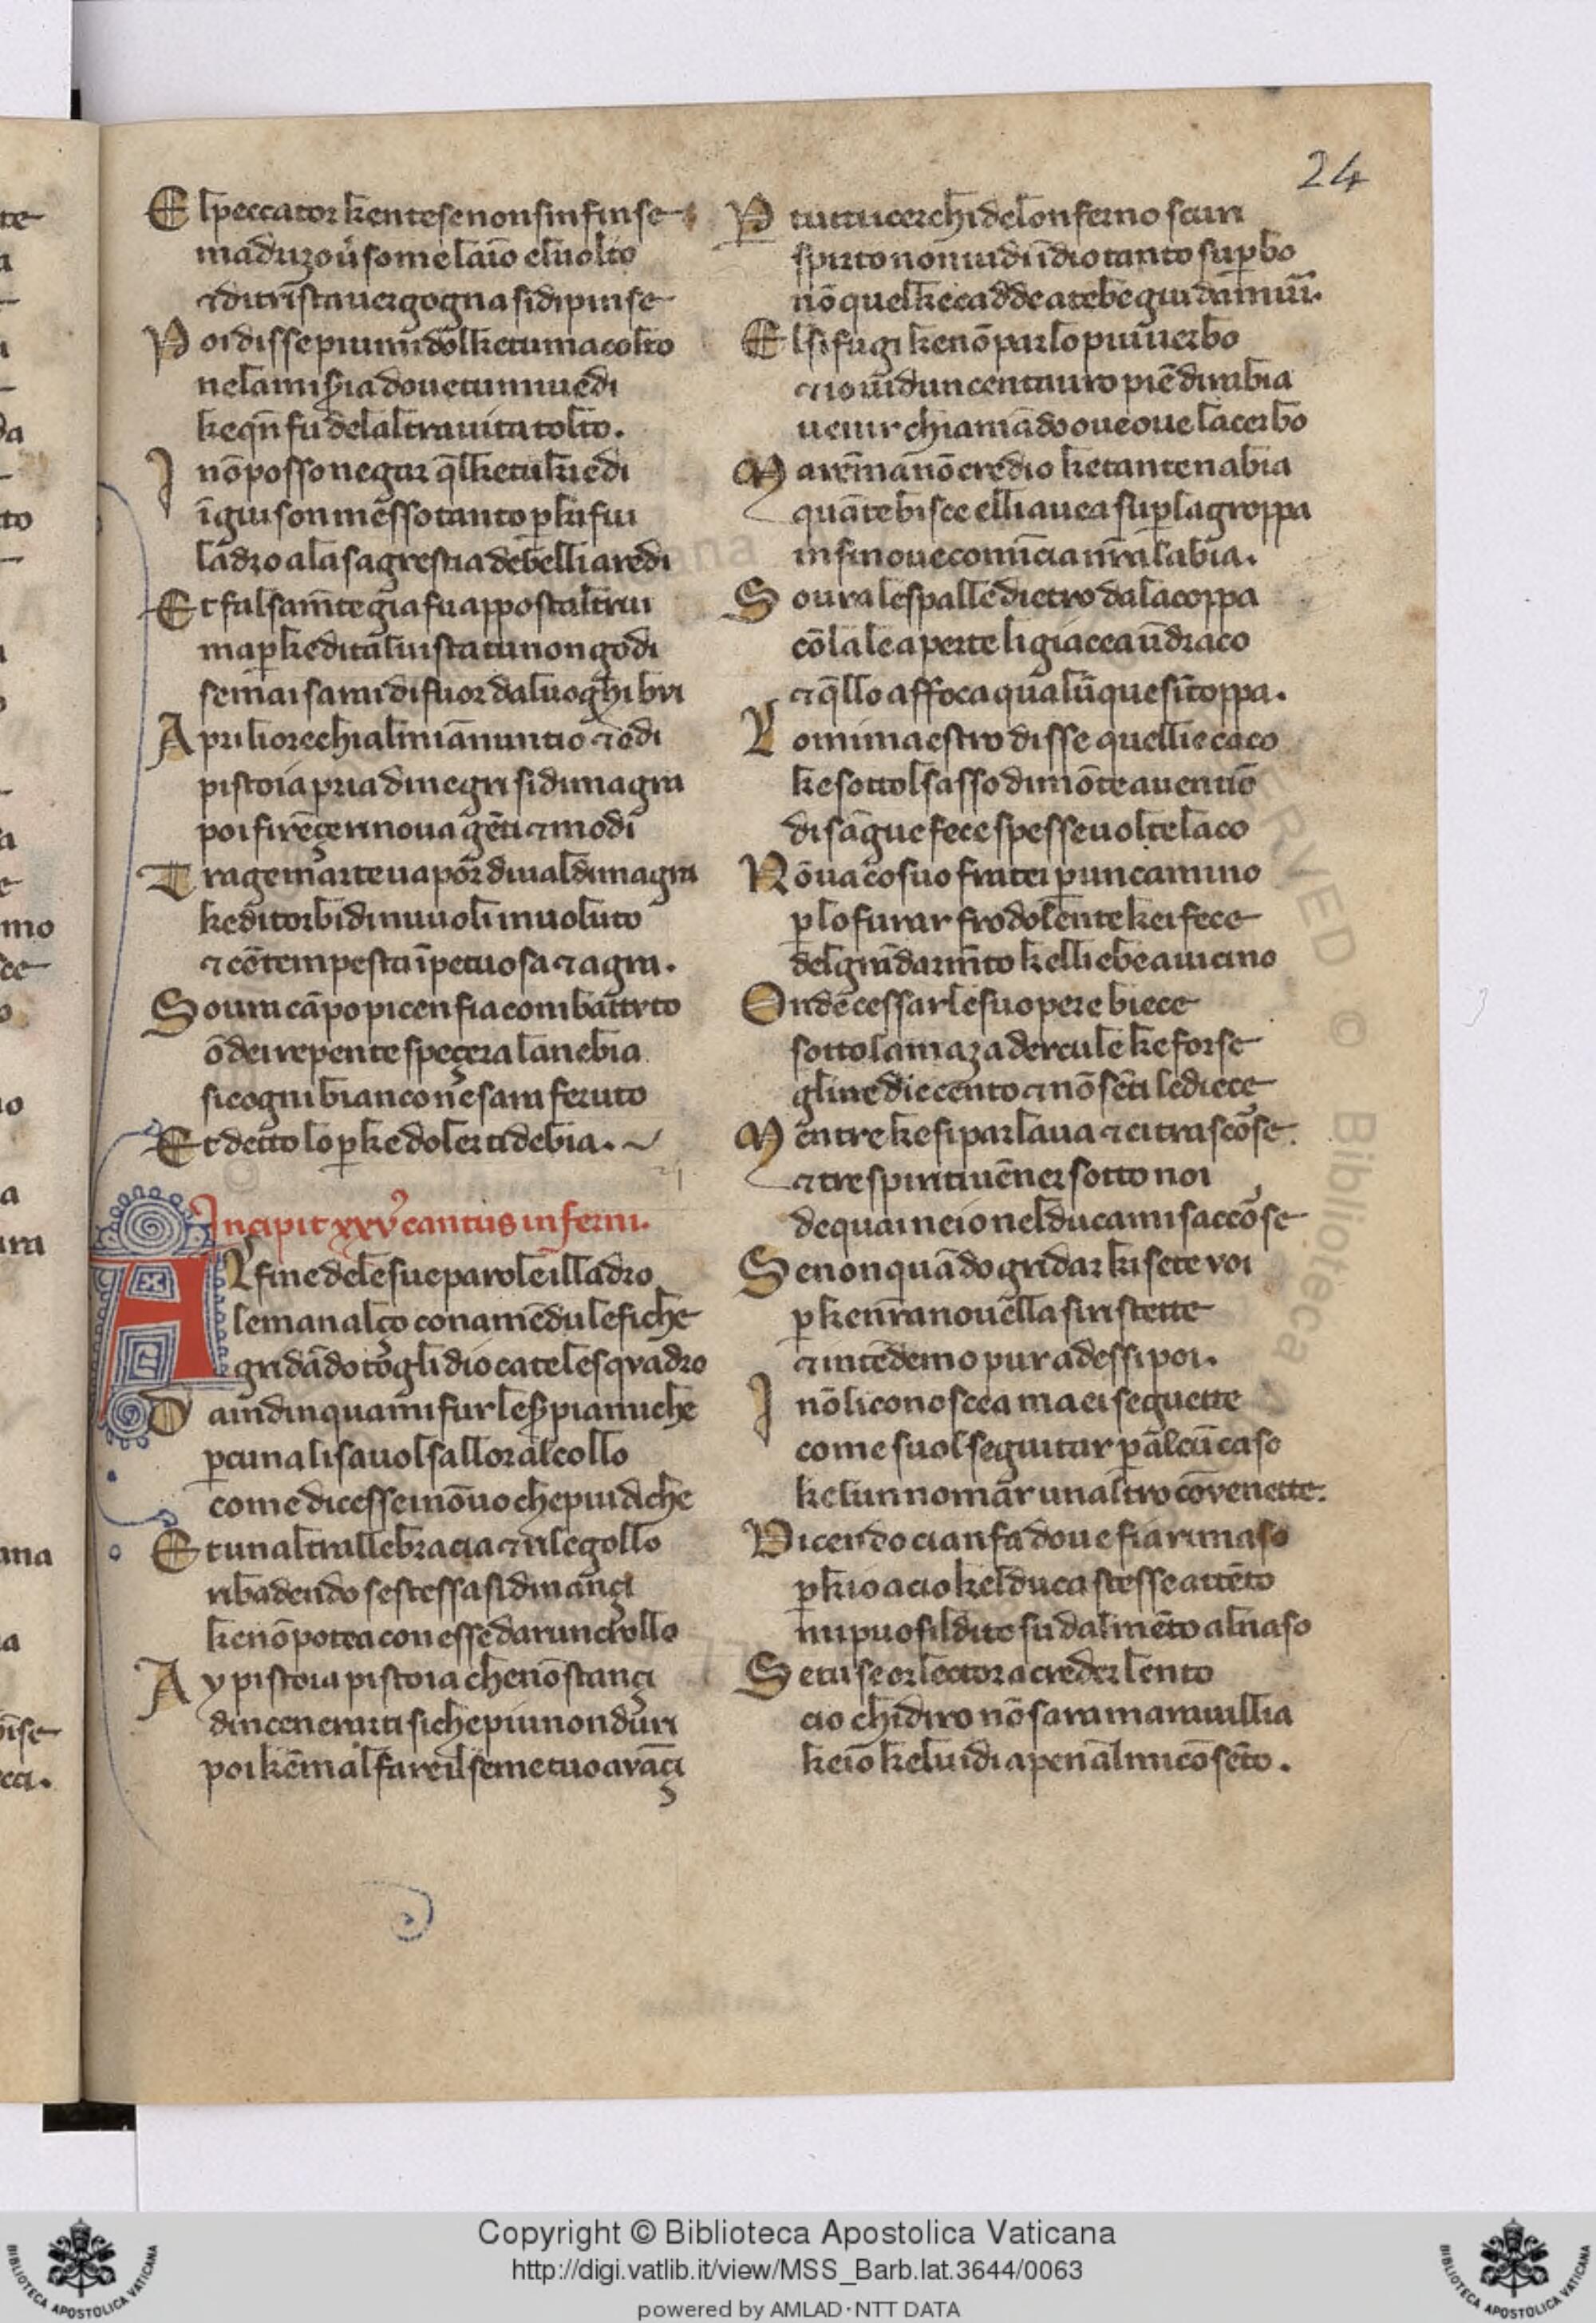 24
E lpeccator kentese non sinfinse
ma drizou̓somelaīo eluolto
⁊ ditrīsta uergogna sidipinse
P oi disse piu mi dol ke tu maicolto
nela mis̓ia doue tu mi uedi
ke qñ fu delaltra uita tolto.
I nō posso negar q̄l ke tu kiedi
īgiu son messo tanto p̱ki fui
ladro ala sagrestia de belli aredi
E t falsam̄te gia fu appost altrui
ma p̱ke di tal uista tu non godi
se mai sarai di fuor da luoghi bui
A pri liorechi almi ānuntio ⁊ odi
pistoia pria di negri si dimagra
poi firēçe rinoua gēti ⁊ modi
T ragemarte uapor di ual di magra
ke di torbidi nuuoli inuoluto
⁊ cō tempesta īpetuosa ⁊ agra.
S oura cāpo picen fia combattuto
ōdei repente speçera la nebia
sicogni bianco ne sara feruto
E t detto lo p̱ke doler ti debia.
Incipit xxv cantus inferni.
A L fine dele sue parole il ladro
le man alço con amēdule fiche
gridādo togli dio ca te le sqvadro
D a indi in qua mi fur le s̓pi amiche
p̱cuna li sauolsallor al collo
come dicesse i nō uo che piu diche
E t unaltra lle bracia ⁊ rilegollo
ribadendo se stessa si dinançi
ke nō potea con esse dar un crollo
A y pistoia pistoia che nō stançi
dinceneriti si che piu non duri
poi kē mal fare il seme tuo avāçi
P tutti cerchi delonferno scuri
spirto non uidi īdio tanto sup̱bo
nō quel ke cadde a tebe giu da muri.
E l si fugi ke nō parlo piu uerbo
⁊ io uidi un centauro piē di rabia
uenir chiamādo oue oue lacerbo
M arēma nō credio ke tante nabia
quāte bisce elli auea sup̱ la groppa
insin oue comīcia nr̄a labia.
S oura le spalle dietro da la coppa
cō lale aperte li giacea ū draco
⁊ q̄llo affoca qualūque sītoppa.
L o mi maestro disse quelli e caco
ke sottol sasso di mōte auentīo
di sāgue fece spesse uolte laco
N ō ua co suo fratei p̱ un camino
p̱ lo furar frodolente kei fece
del grāda rm̄to kelli ebe a uicino
O nde cessar le suo pere biece
sotto la maza dercule ke forse
gline die cento ⁊ nō sēti le diece
M entre ke si parlaua ⁊ ei trascorse
⁊ tre spiriti uēner sotto noi
de qua i ne io nel duca mi saccorse
S e non quādo gridar ki sete voi
p̱ke nr̄a nouella si ristette
⁊ intēdemo pur ad essi poi.
I nō li conoscea ma ei seguette
come suol seguitar p̱ alcū caso
ke lun nomar un altro cōvenette.
D icendo cianfa doue fia rimaso
p̱kio acio kel duca stesse attēto
mi puosil dito su dal mēto al naso
S e tu se or lector a creder lento
cio chi diro nō sara marauillia
ke io kel uidi apena il mi cōsēto.
Copyright © Biblioteca Apostolica Vaticana
http://digi.vatlib.it/view/MSS_Barb.lat.3644/0063
powered by AMLAD·NTT DATA